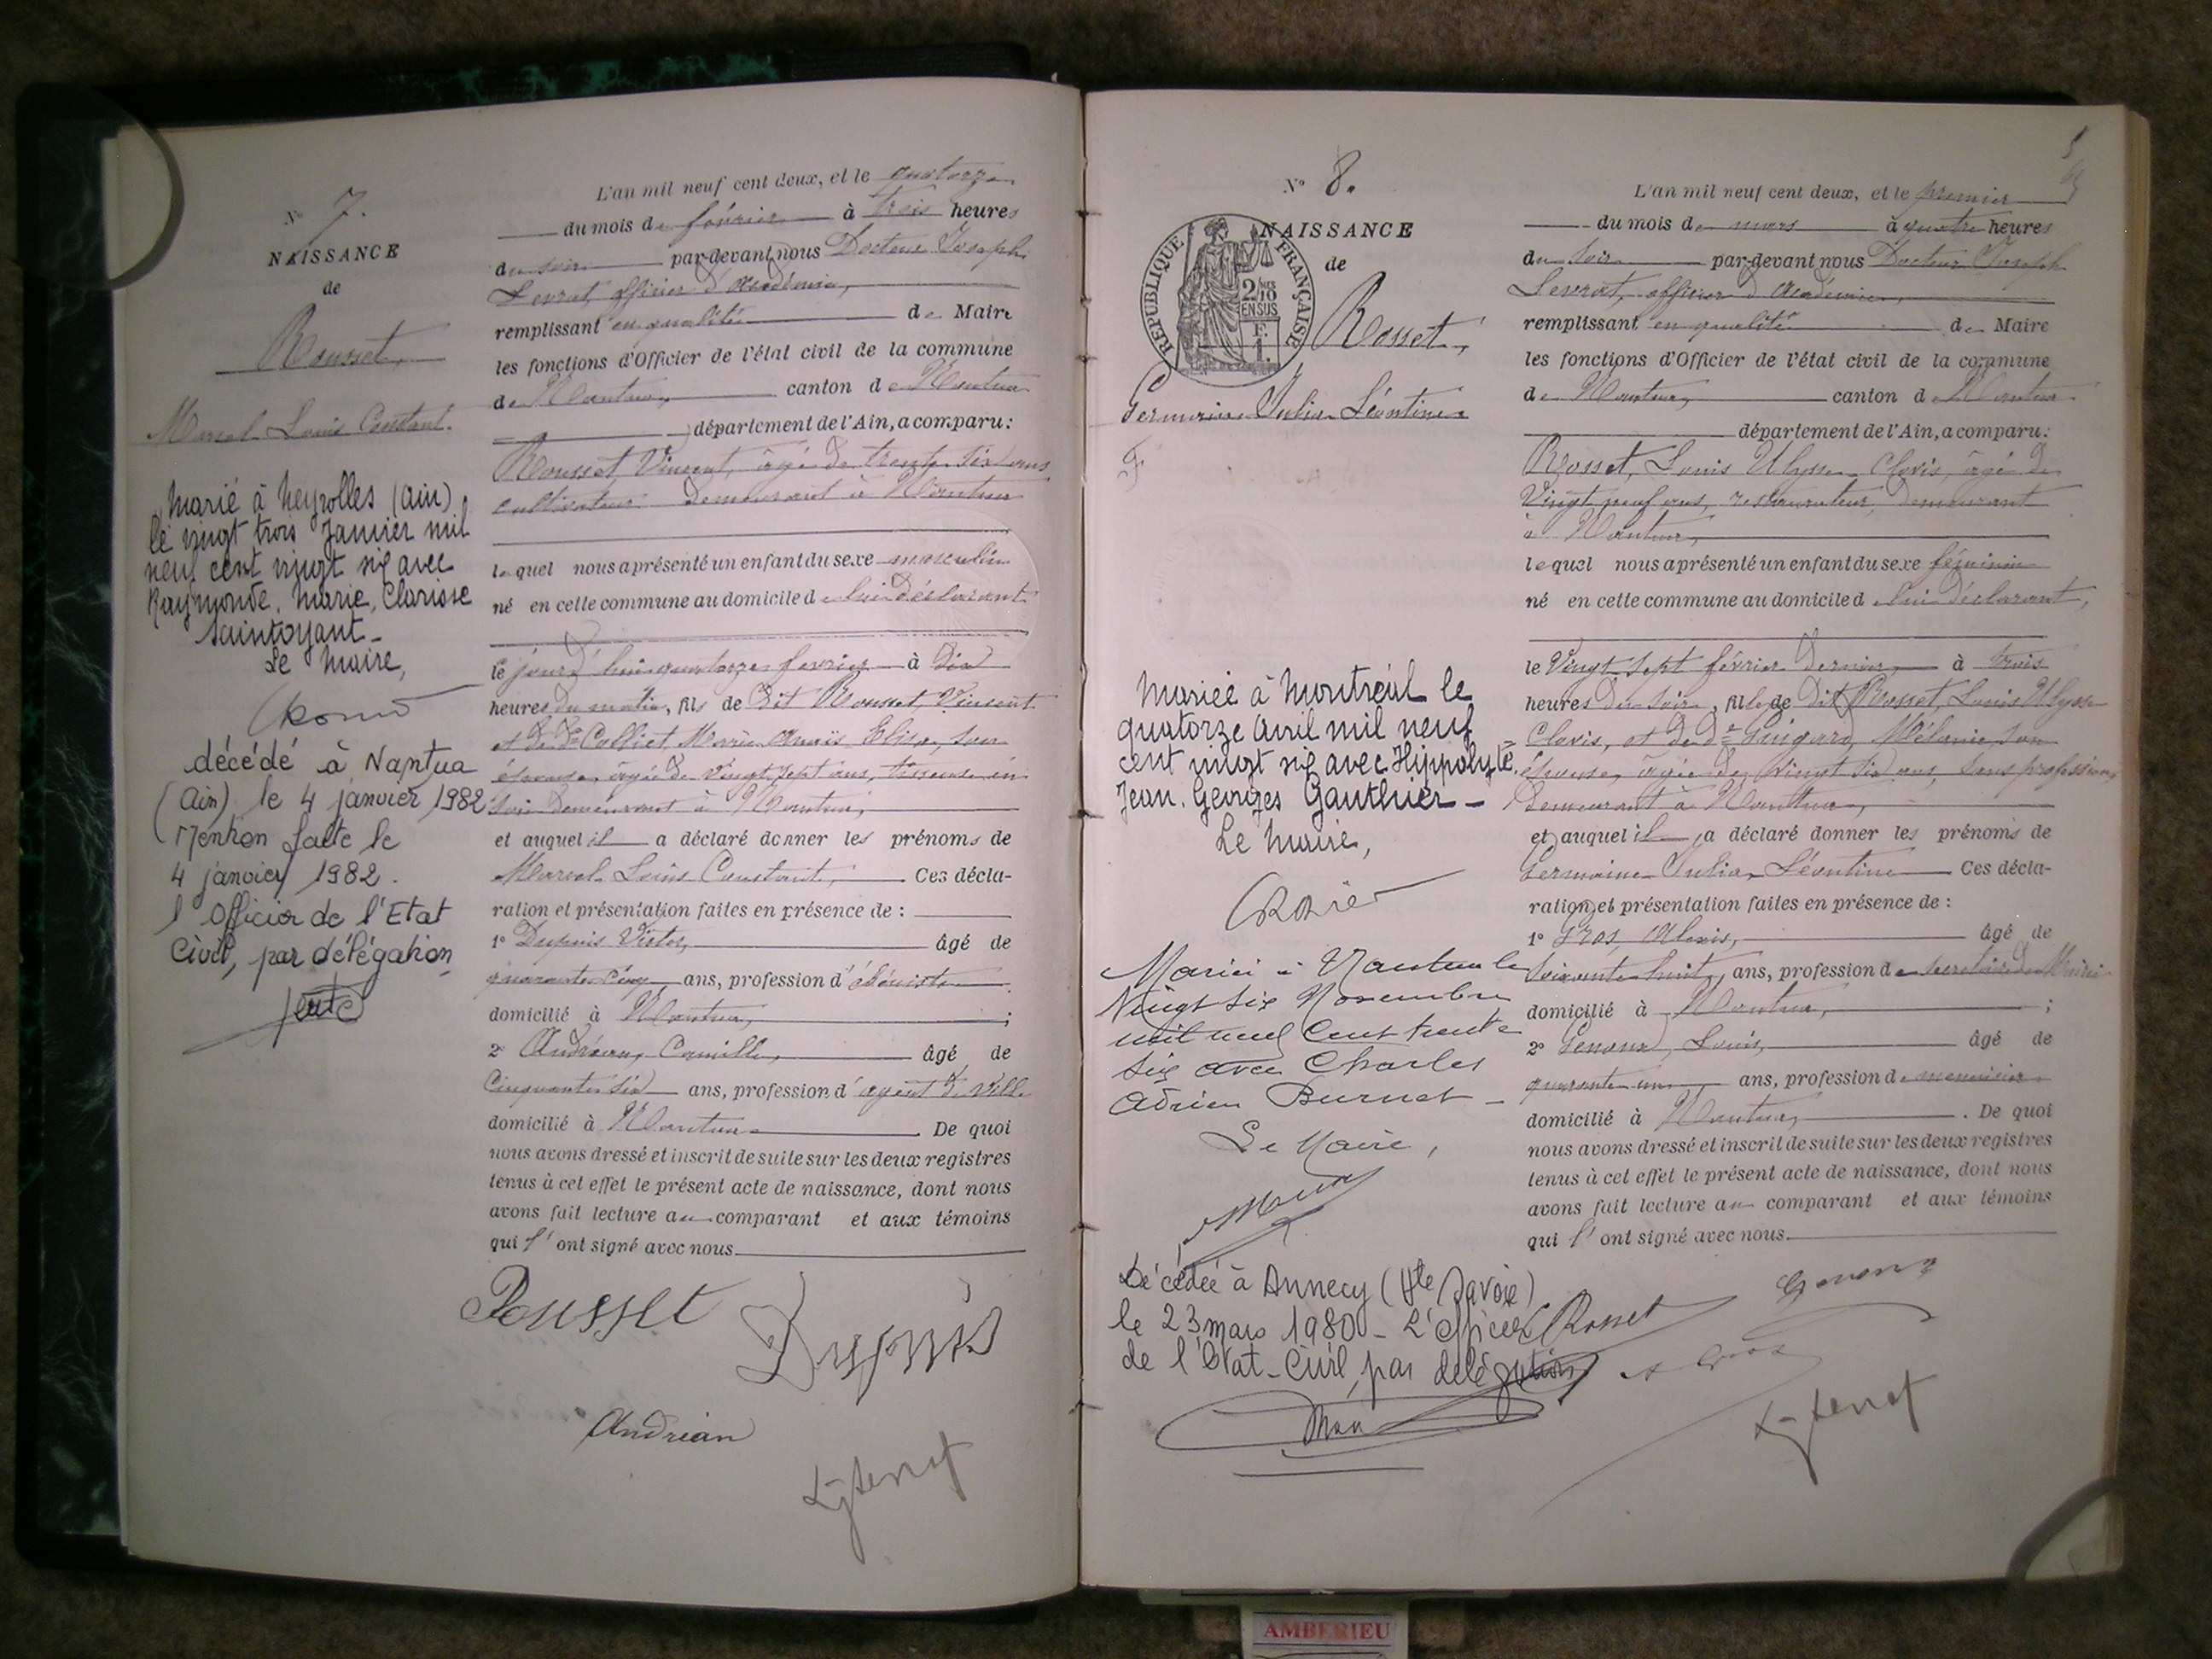 N° 7.
NAISSANCE
de
Rousset,
Marcel Louis Constant.
Marié à Neyrolles (Ain)
le vingt trois Janvier mil
neuf cent vingt six avec
Raymonde, Marie, Clarisse
Saintoyant_
Le Maire,
décédé à Nantua
(Ain) le 4 janvier 1982
Mention faite le
4 janvier 1982.
l'Officier de l'Etat
Civil, par délégation
L'an mil neuf cent deux, et le quatorze
du mois de février à trois heures
du soir par-devant nous Docteur Joseph
Levrat, officier d'Académie,
remplissant en qualité de Maire
les fonctions d'Officier de l'état civil de la commune
de Nantua, canton de Nantua
département de l'Ain, a comparu:
Rousset, Vincent, âgé de trente six ans
cultivateur demeurant à Nantua
lequel nous a présenté un enfant du sexe masculin
né en cette commune au domicile de lui déclarant
le jourd'hui quatorze février à dix
heures du matin, fils de dit Rousset, Vincent
et de De Colliet Marie Anaïs Elisa, son
épouse, âgée de vingt sept ans, tisseuse en
soie demeurant à Nantua,
et auquel il a déclaré donner les prénoms de
Marcel Louis Constant, Ces décla-
ration et présentation faites en présence de :
1° Dupuis Victor, âgé de
quarante cinq ans, profession d'ébéniste
domicilié à Nantua, ;
2° Andréan, Camille, âgé de
cinquante six ans, profession d'agent de ville
domicilié à Nantua De quoi
nous avons dressé et inscrit de suite sur les deux registres
tenus à cet effet le présent acte de naissance, dont nous
avons fait lecture au comparant et aux témoins
qui l'ont signé avec nous
Rousset
Dupuis
Andrean
N° 8.
NAISSANCE
de
RÉPUBLIQUE FRANÇAISE
2/10
EN SUS
F.
1.
Rosset,
Germaine Julia Léontine
F
Mariée à Montreuil le
quatorze Avril mil neuf
cent vingt six avec Hippolyte
Jean. Georges Gauthier_
Le Maire,
Mariée à Nantua le
Vingt six Novembre
mil neuf cent trente
six avec Charles
Adrien Burnet_
Le Maire,
Décédée à Annecy (Hte Savoie)
le 23 mars 1980_ L'officier
de l'Etat-Civil, par délégation
L'an mil neuf cent deux, et le premier
du mois de mars à quatre heures
du soir par-devant nous Docteur Joseph
Levrat, officier d'Académie,
remplissant en qualité de Maire
les fonctions d'Officier de l'état civil de la commune
de Nantua, canton de Nantua
département de l'Ain, a comparu:
Rosset, Louis Ulysse Clovis, âgé de
vingt neuf ans, restaurateur, demeurant
à Nantua,
lequel nous a présenté un enfant du sexe féminin
né en cette commune au domicile de lui déclarant,
le vingt sept février dernier, à trois
heures du soir, fille de dit Rosset, Louis Ulysse
Clovis, et de De Guigard, Mélanie, son
épouse, âgée de vingt six ans, sans profession,
demeurant à Nantua,
et auquel il a déclaré donner les prénoms de
Germaine Julia Léontine Ces décla-
ration et présentation faites en présence de :
1° Gros, Alexis, âgé de
soixante huit ans, profession de secrétaire de Mairie
domicilié à Nantua, ;
2° Genoud, Louis, âgé de
quarante un ans, profession de menuisier
domicilié à Nantua, . De quoi
nous avons dressé et inscrit de suite sur les deux registres
tenus à cet effet le présent acte de naissance, dont nous
avons fait lecture au comparant et aux témoins
qui l'ont signé avec nous
Rosset
AMBERIEU